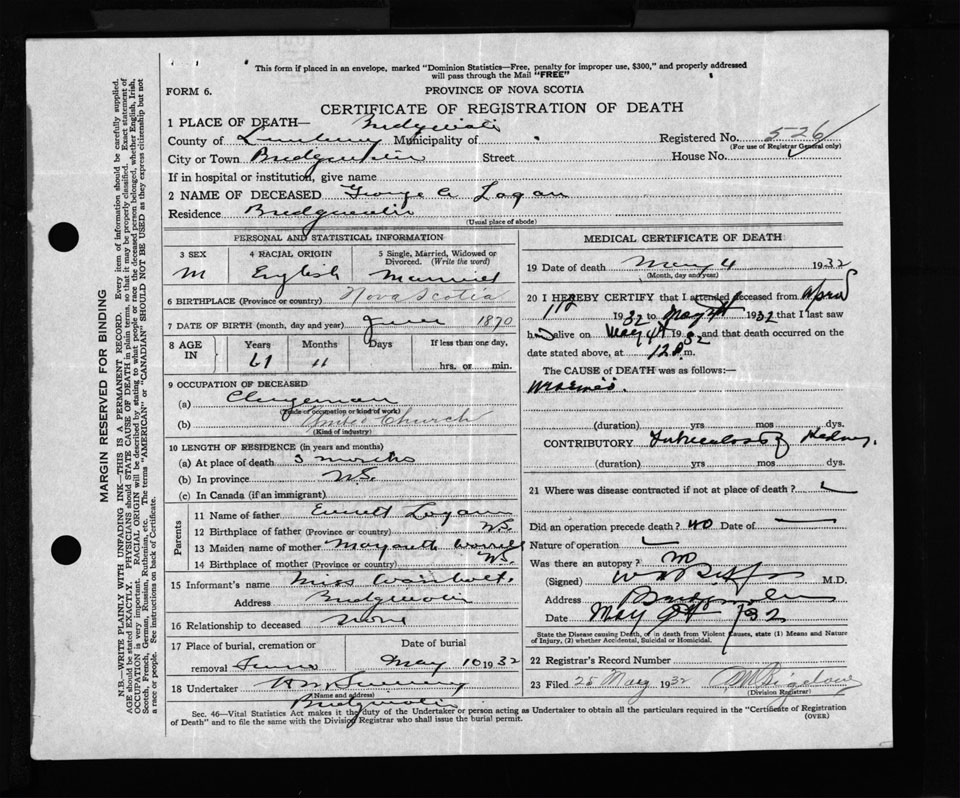 This form if placed in an envelope, marked "Dominion Statistics—Free, penalty for improper use, $300," and properly addressed
will pass through the Mail "FREE"
FORM 6.
PROVINCE OF NOVA SCOTIA
CERTIFICATE OF REGISTRATION OF DEATH
1 PLACE OF DEATH—
County of Municipality of
Registered No. 526
(For use of Registrar General only)
City or Town Street House No.
If in hospital or institution, give name
2 NAME OF DECEASED George A Logan
Residence
(Usual place of abode)
PERSONAL AND STATISTICAL INFORMATION
3 SEX M
4 RACIAL ORIGIN English
5 Single, Married, Widowed or Divorced. (Write the word) Married
6 BIRTHPLACE (Province or country) Nova Scotia
7 DATE OF BIRTH (month, day and year) June 1870
8 AGE IN Years Months Days If less than one day,
61 11 hrs. or min.
9 OCCUPATION OF DECEASED
(a) Clergyman
(Trade of occupation or kind of work)
(b) United Church
(Kind of industry)
10 LENGTH OF RESIDENCE (in years and months)
(a) At place of death 3 months
(b) In province N.S.
(c) In Canada (if an immigrant)
Parents
11 Name of father Everett Logan
12 Birthplace of father (Province or country) N.S.
13 Maiden name of mother Margaret
14 Birthplace of mother (Province or country) N.S.
15 Informant's name Miss
Address
16 Relationship to deceased None
17 Place of burial, cremation or removal
Date of burial
May 10 1932
18 Undertaker
(Name and address)
MEDICAL CERTIFICATE OF DEATH
19 Date of death May 4 1932
(Month, day and year)
20 I HEREBY CERTIFY that I attended deceased from April
1932 to 1932 that I last saw
h alive on May 4th 1932 and that death occurred on
date stated above, at 12 P.m.
The CAUSE of DEATH was as follows:—
(duration) yrs mos dys.
CONTRIBUTORY Tuberculosis of Kidney.
(duration) yrs mos dys.
21 Where was disease contracted if not at place of death?
Did an operation precede death? NO Date of
Nature of operation
Was there an autopsy? NO
(Signed) M.D.
Address
Date May 1932
State the Disease causing Death, or in death from Violent Causes, state (1) Means and Nature
of Injury, (2) whether Accidental, Suicidal or Homicidal.
22 Registrar's Record Number
23 Filed 25 May 1932
(Division Registrar)
Sec. 46—Vital Statistics Act makes it the duty of the Undertaker or person acting as Undertaker to obtain all the particulars required in the "Certificate of Registration
of Death" and to file the same with the Division Registrar who shall issue the burial permit.
(OVER)
MARGIN RESERVED FOR BINDING
N.B.—WRITE PLAINLY WITH UNFADING INK—THIS IS A PERMANENT RECORD. Every item of information should be carefully supplied.
AGE should be stated EXACTLY. PHYSICIANS should STATE CAUSE OF DEATH in plain terms, so that it may be properly classified. Exact statement of
OCCUPATION is very important. RACIAL ORIGIN will be described by stating to what people or race the deceased person belonged, whether English, Irish,
Scotch, French, German, Russian, Ruthenian, etc. The terms "AMERICAN" or "CANADIAN" SHOULD NOT BE USED as they express citizenship but not
a race or people. See instructions on back of Certificate.